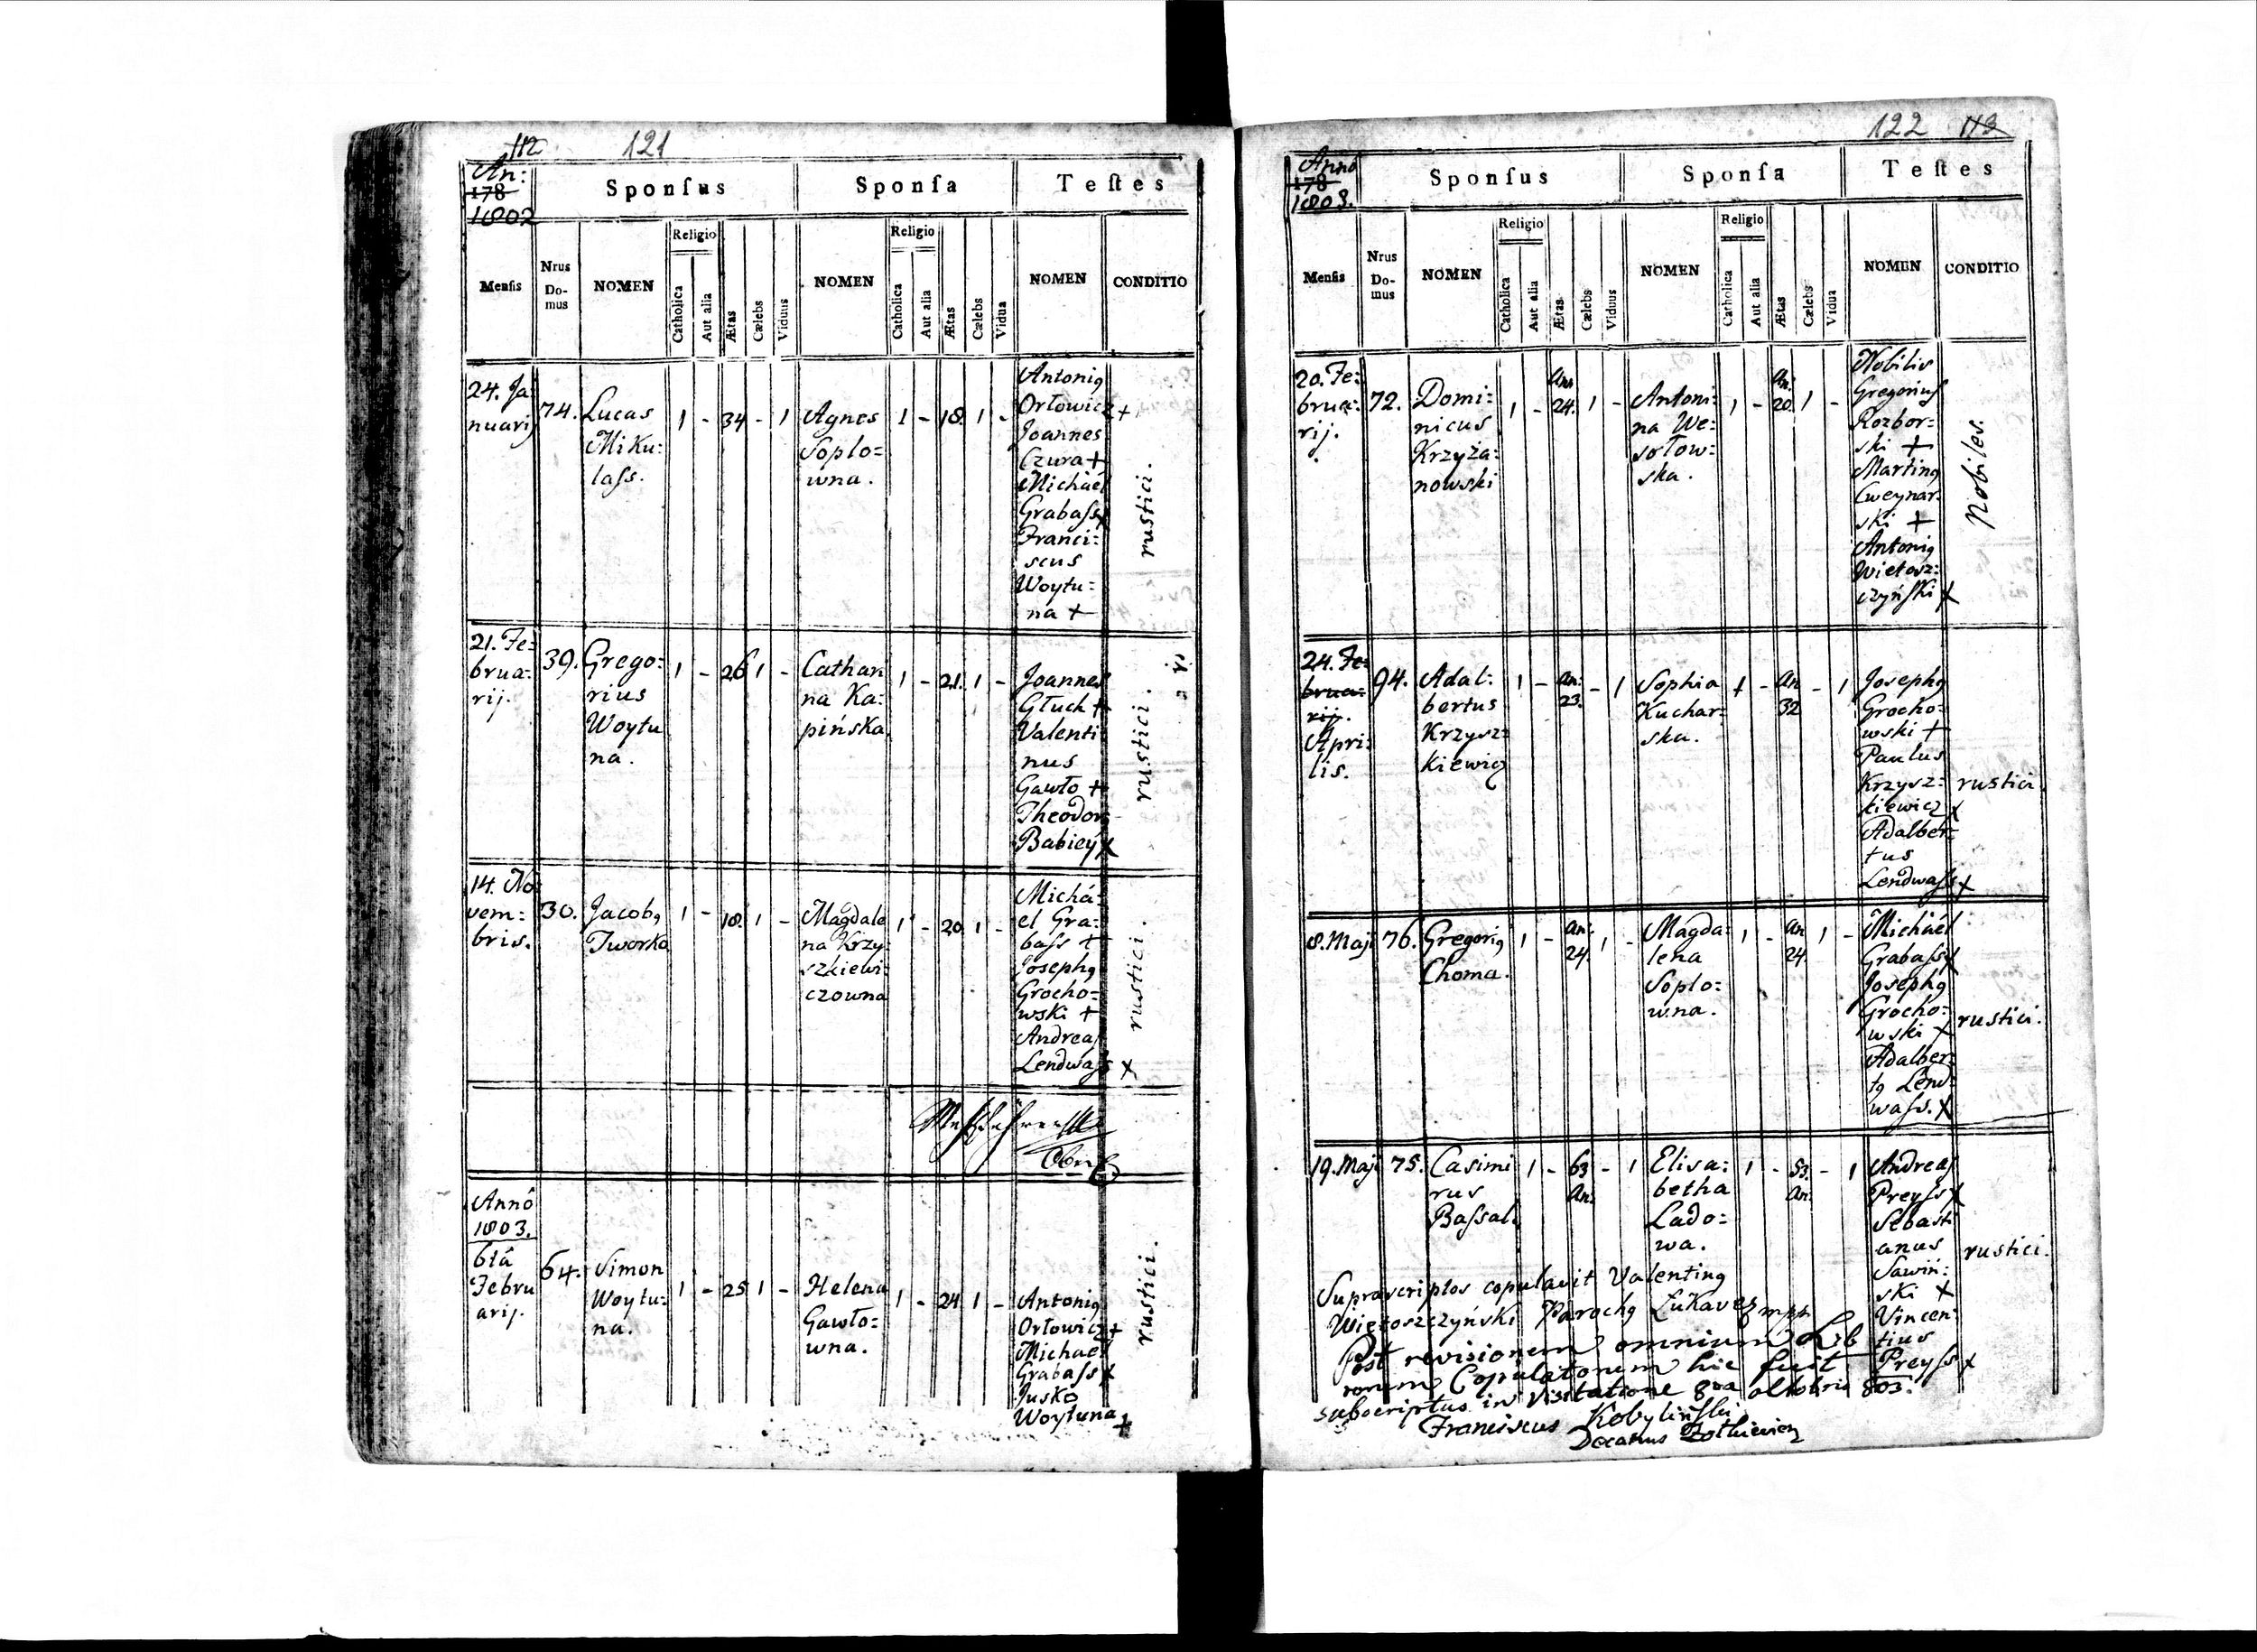 112 121
An:
178
1802
Sponſus Sponſa Teſtes
Menſis
Nrus
Do-
mus
NOMEN
Religio
Catholica
Aut alia
Ætas
Cælebs
Viduus
NOMEN
Religio
Catholica
Aut alia
Ætas
Cælebs
Vidua
NOMEN
CONDITIO
24. Ja:
nuarij
74.
Lucas
Miku:
laſs.
1 - 34 - 1
Agnes
Soplo=
wna.
1 - 18. 1 -
Antonig
Orłowicz +
Joannes
Czura +
Michael
Grabaſs x
Franci=
scus
Woytu=
na +
rustici.
21. Fe=
brua=
rij.
39.
Grego:
rius
Woytu
na.
1 - 26 1 -
Cathari
na Ka:
pińska
1 - 21. 1 -
Joannes
Głuch +
Valenti
nus
Gawło +
Theodorg
Babiey x
rustici.
14. No
vem=
bris.
30.
Jacobg
Tworko
1 - 18. 1 -
Magdale
na Krzy:
szkiewi:
czowna
1 - 20 1 -
Michá=
el Gra=
baſs +
Josephg
Grocho=
wski +
Andreaſ
Lendwaſs x
rustici.
Annô
1803.
6tâ
Febru
arij.
64.
Simon
Woytu=
na.
1 - 25 1 -
Helena
Gawło=
wna.
1 - 24 1 -
Antonig
Orłowicz +
Michael
Grabaſs x
Jusko
Woytuna +
rustici.
122 113
Anno
178
1803.
Sponſus Sponſa Teſtes
Menſis
Nrus
Do-
mus
NOMEN
Religio
Catholica
Aut alia
Ætas
Cælebs
Viduus
NOMEN
Religio
Catholica
Aut alia
Ætas
Cælebs
Vidua
NOMEN
CONDITIO
20. Fe:
brua:
rij.
72.
Domi:
nicus
Krzyża:
nowski
1 - An 24. 1 -
Antoni:
na We:
sołow:
ska.
1 - An: 20. 1 -
Nobilis
Gregoriuſ
Rozbor=
ski +
Marting
Cweynar
ski +
Antonig
Wietosz:
czyńſki x
Nobiles.
24. Fe:
brua:
rij.
Apri:
lis.
94.
Adal:
bertus
Krzysz:
kiewicz
1 - An: 23. - 1
Sophia
Kuchar:
ska.
1 - An 32 - 1
Josephg
Grocho=
wski +
Paulus
Krzysz=
kiewicz x
Adalber:
tus
Lendwaſs x
rustici.
8. Maji
76.
Gregorig
Choma.
1 - An: 24. 1 -
Magda:
lena
Soplo=
wna.
1 - An 24 1 -
Michaël
Grabaſs x
Josephg
Grocho=
wski x
Adalber:
tg Lend=
waſs. x
rustici.
19. Maji
75.
Casimi
rus
Baſsal.
1 - 63 An. - 1
Elisa:
betha
Lado:
wa.
1 - 53. An. - 1
Andreaſ
Preyſs x
Sebasti
anus
Sawiń:
ski x
Vincen
tius
Preyſs x
rustici.
Suprascriptos copulavit Valenting
Wietoszczyński Parochg Lukavez mpp
Post revisionem omnium Lib
rorum Copulatorum hic fuit
subscriptus in Visitatione 8va octobris 803.
Franciscus Kobyliński
Decanus